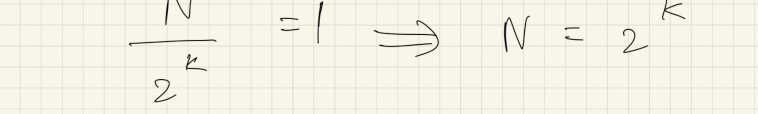 N/2^k = 1 ⟹ N = 2^k